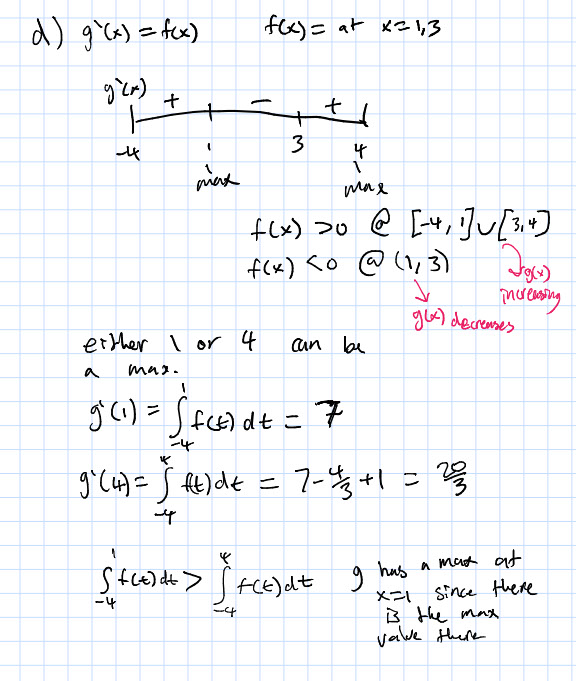 d) g'(x) = f(x) f(x) = at x = 1,3
g'(x)
+ − +
-4 1 3 4
max max
f(x) > 0 @ [-4, 1] ∪ [3, 4]
f(x) < 0 @ (1, 3)
g(x) increasing
g(x) decreases
either 1 or 4 can be
a max.
g'(1) = ∫_{-4}^{1} f(t) dt = 7
g'(4) = ∫_{-4}^{4} f(t) dt = 7 - 4/3 + 1 = 20/3
∫_{-4}^{1} f(t) dt > ∫_{-4}^{4} f(t) dt
g has a max at
x=1 since there
is the max
value there